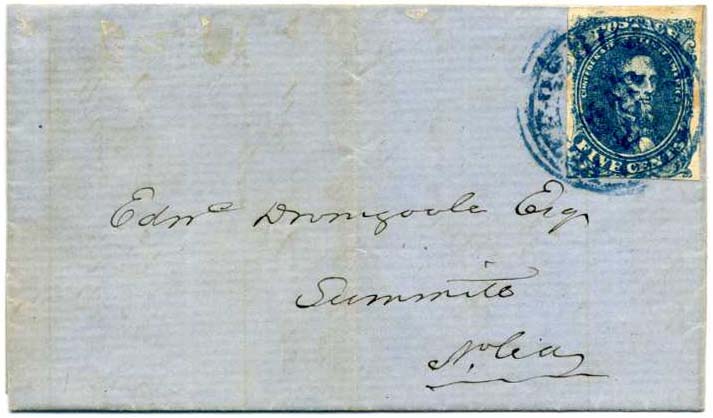 POSTAGE
CONFEDERATE STATES OF AMERICA
FIVE CENTS
Edwd Dromgoole Esq
Summit
N. Ca